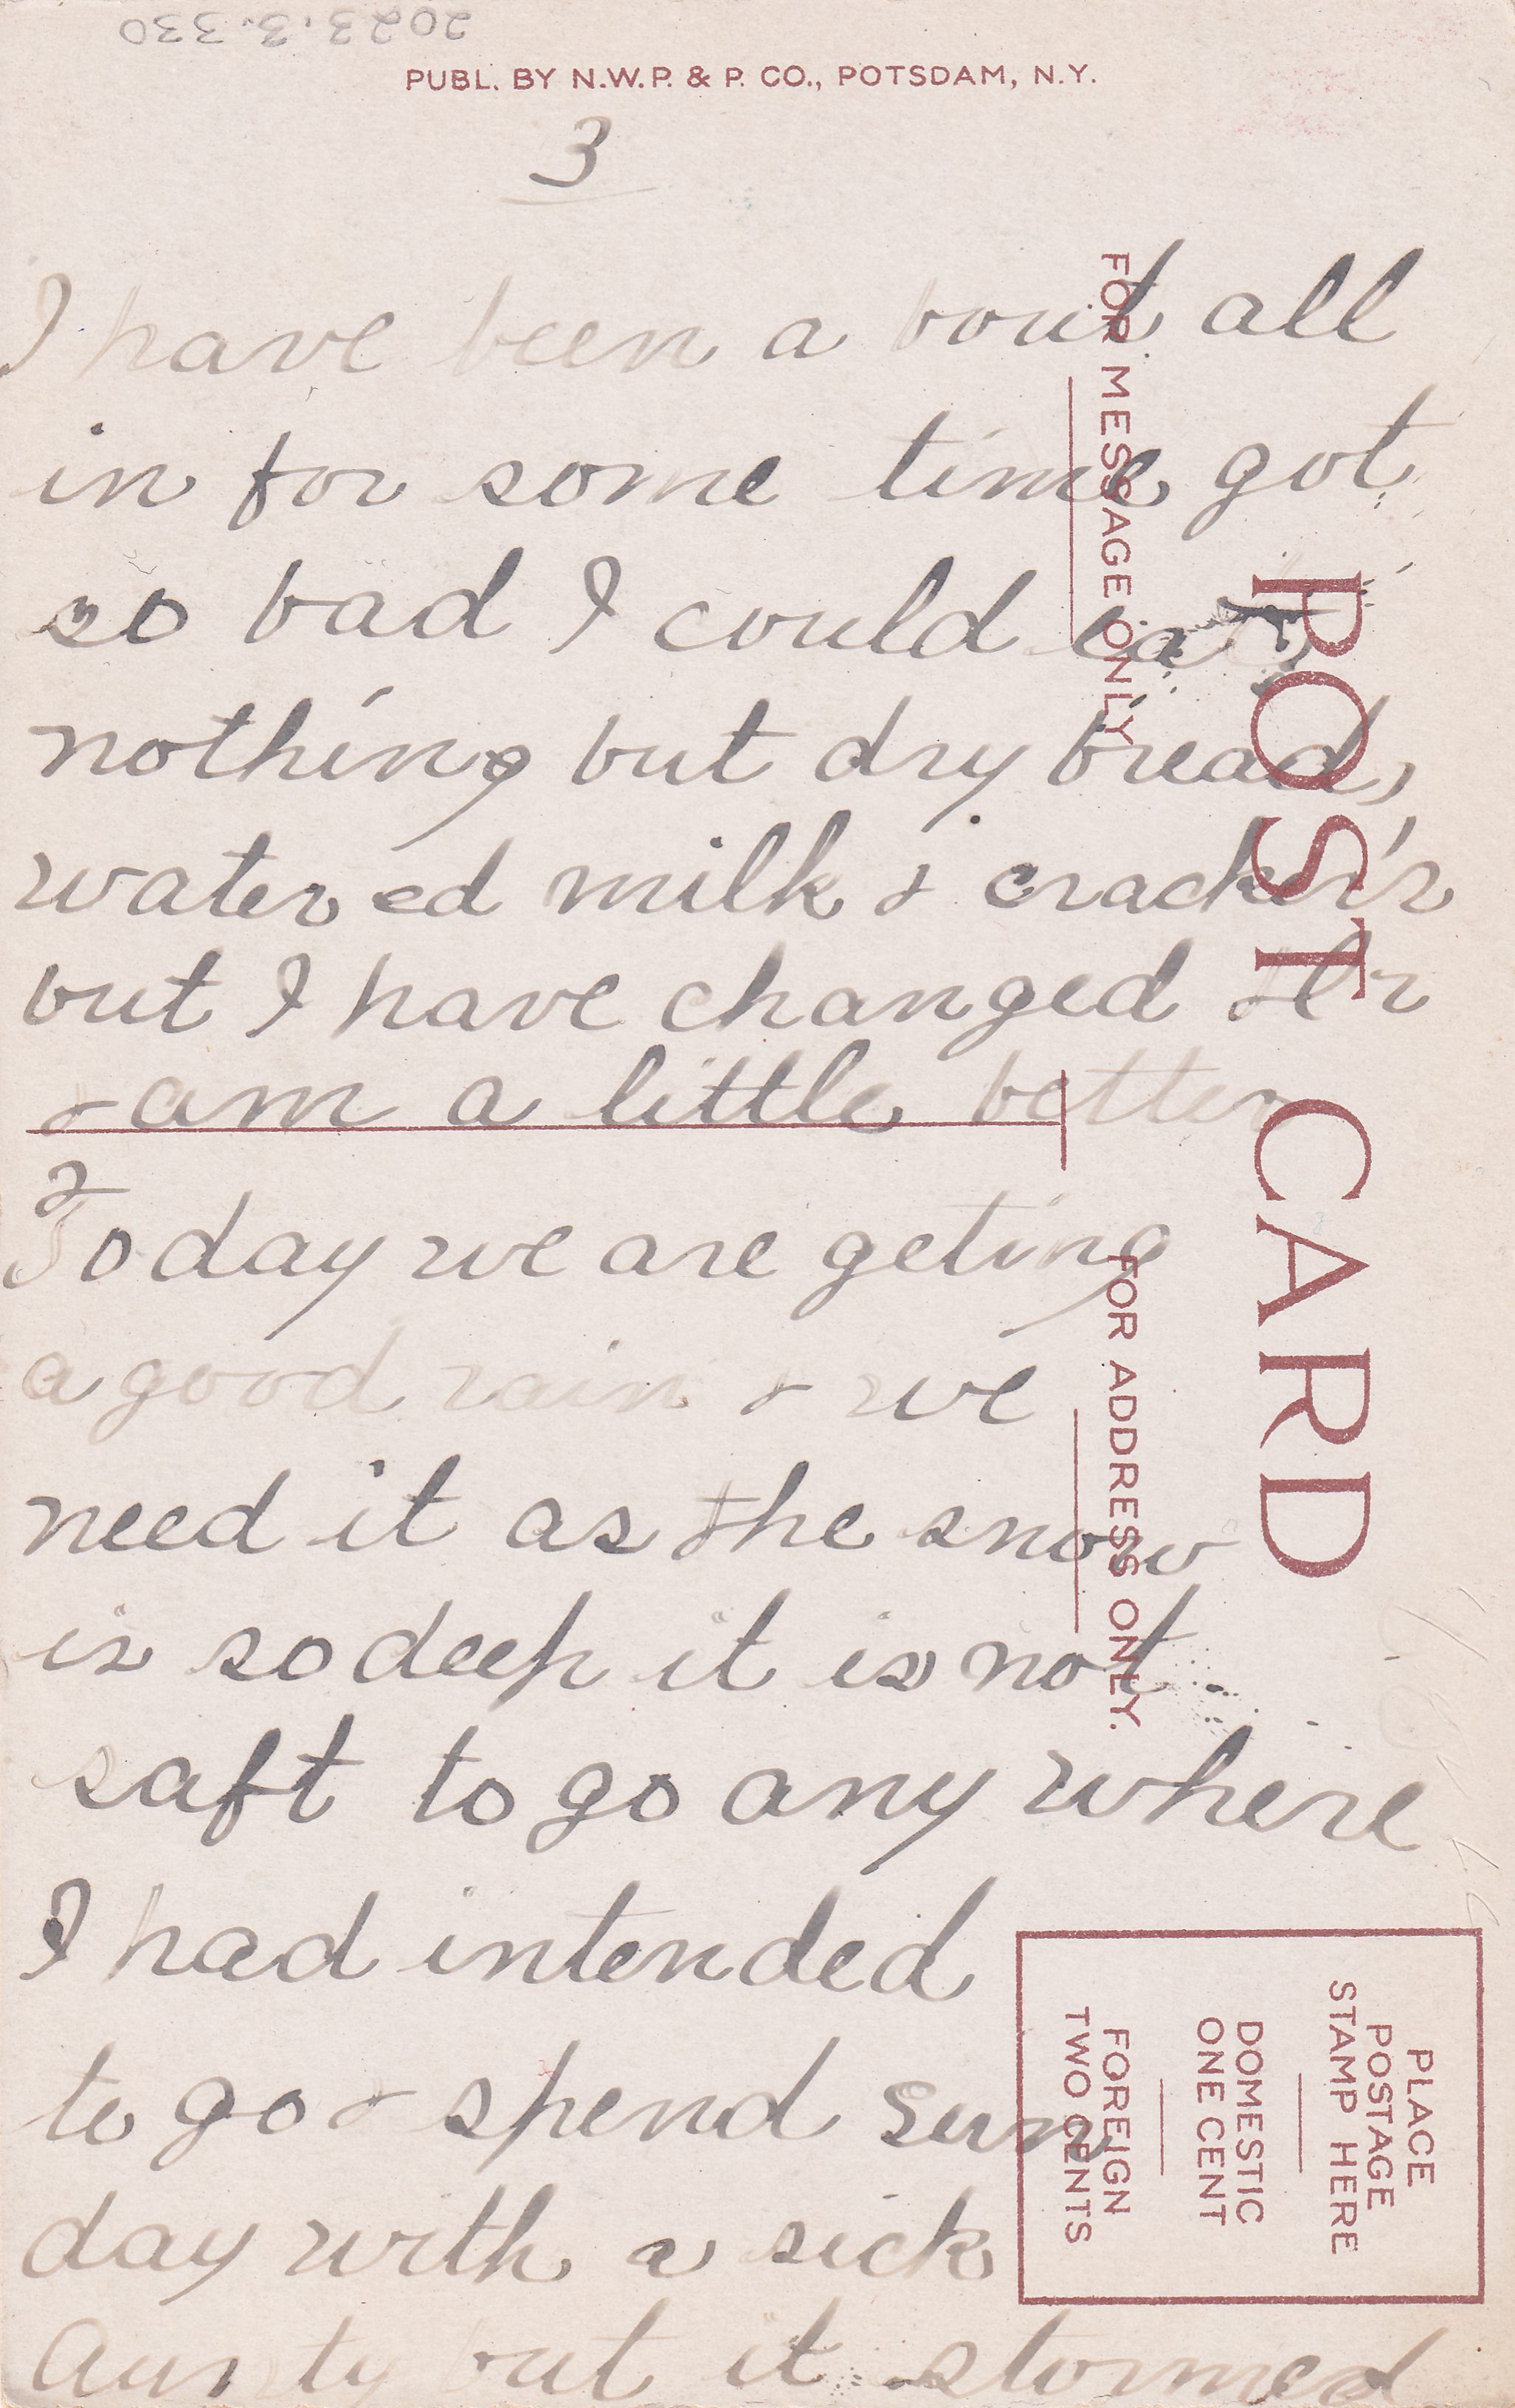 2023.3.330
PUBL. BY N.W.P. & P. CO., POTSDAM, N.Y.
3
I have been a bout all
in for some time got
so bad I could eat
nothing but dry bread,
watered milk & cracker's
but I have changed Dr
& am a little better
Today we are geting
a good rain & we
need it as the snow
is so deep it is not
saft to go any where
I had intended
to go & spend sun
day with a sick
Aunty but it stormed
POST CARD
FOR MESSAGE ONLY
FOR ADDRESS ONLY.
PLACE
POSTAGE
STAMP HERE
DOMESTIC
ONE CENT
FOREIGN
TWO CENTS